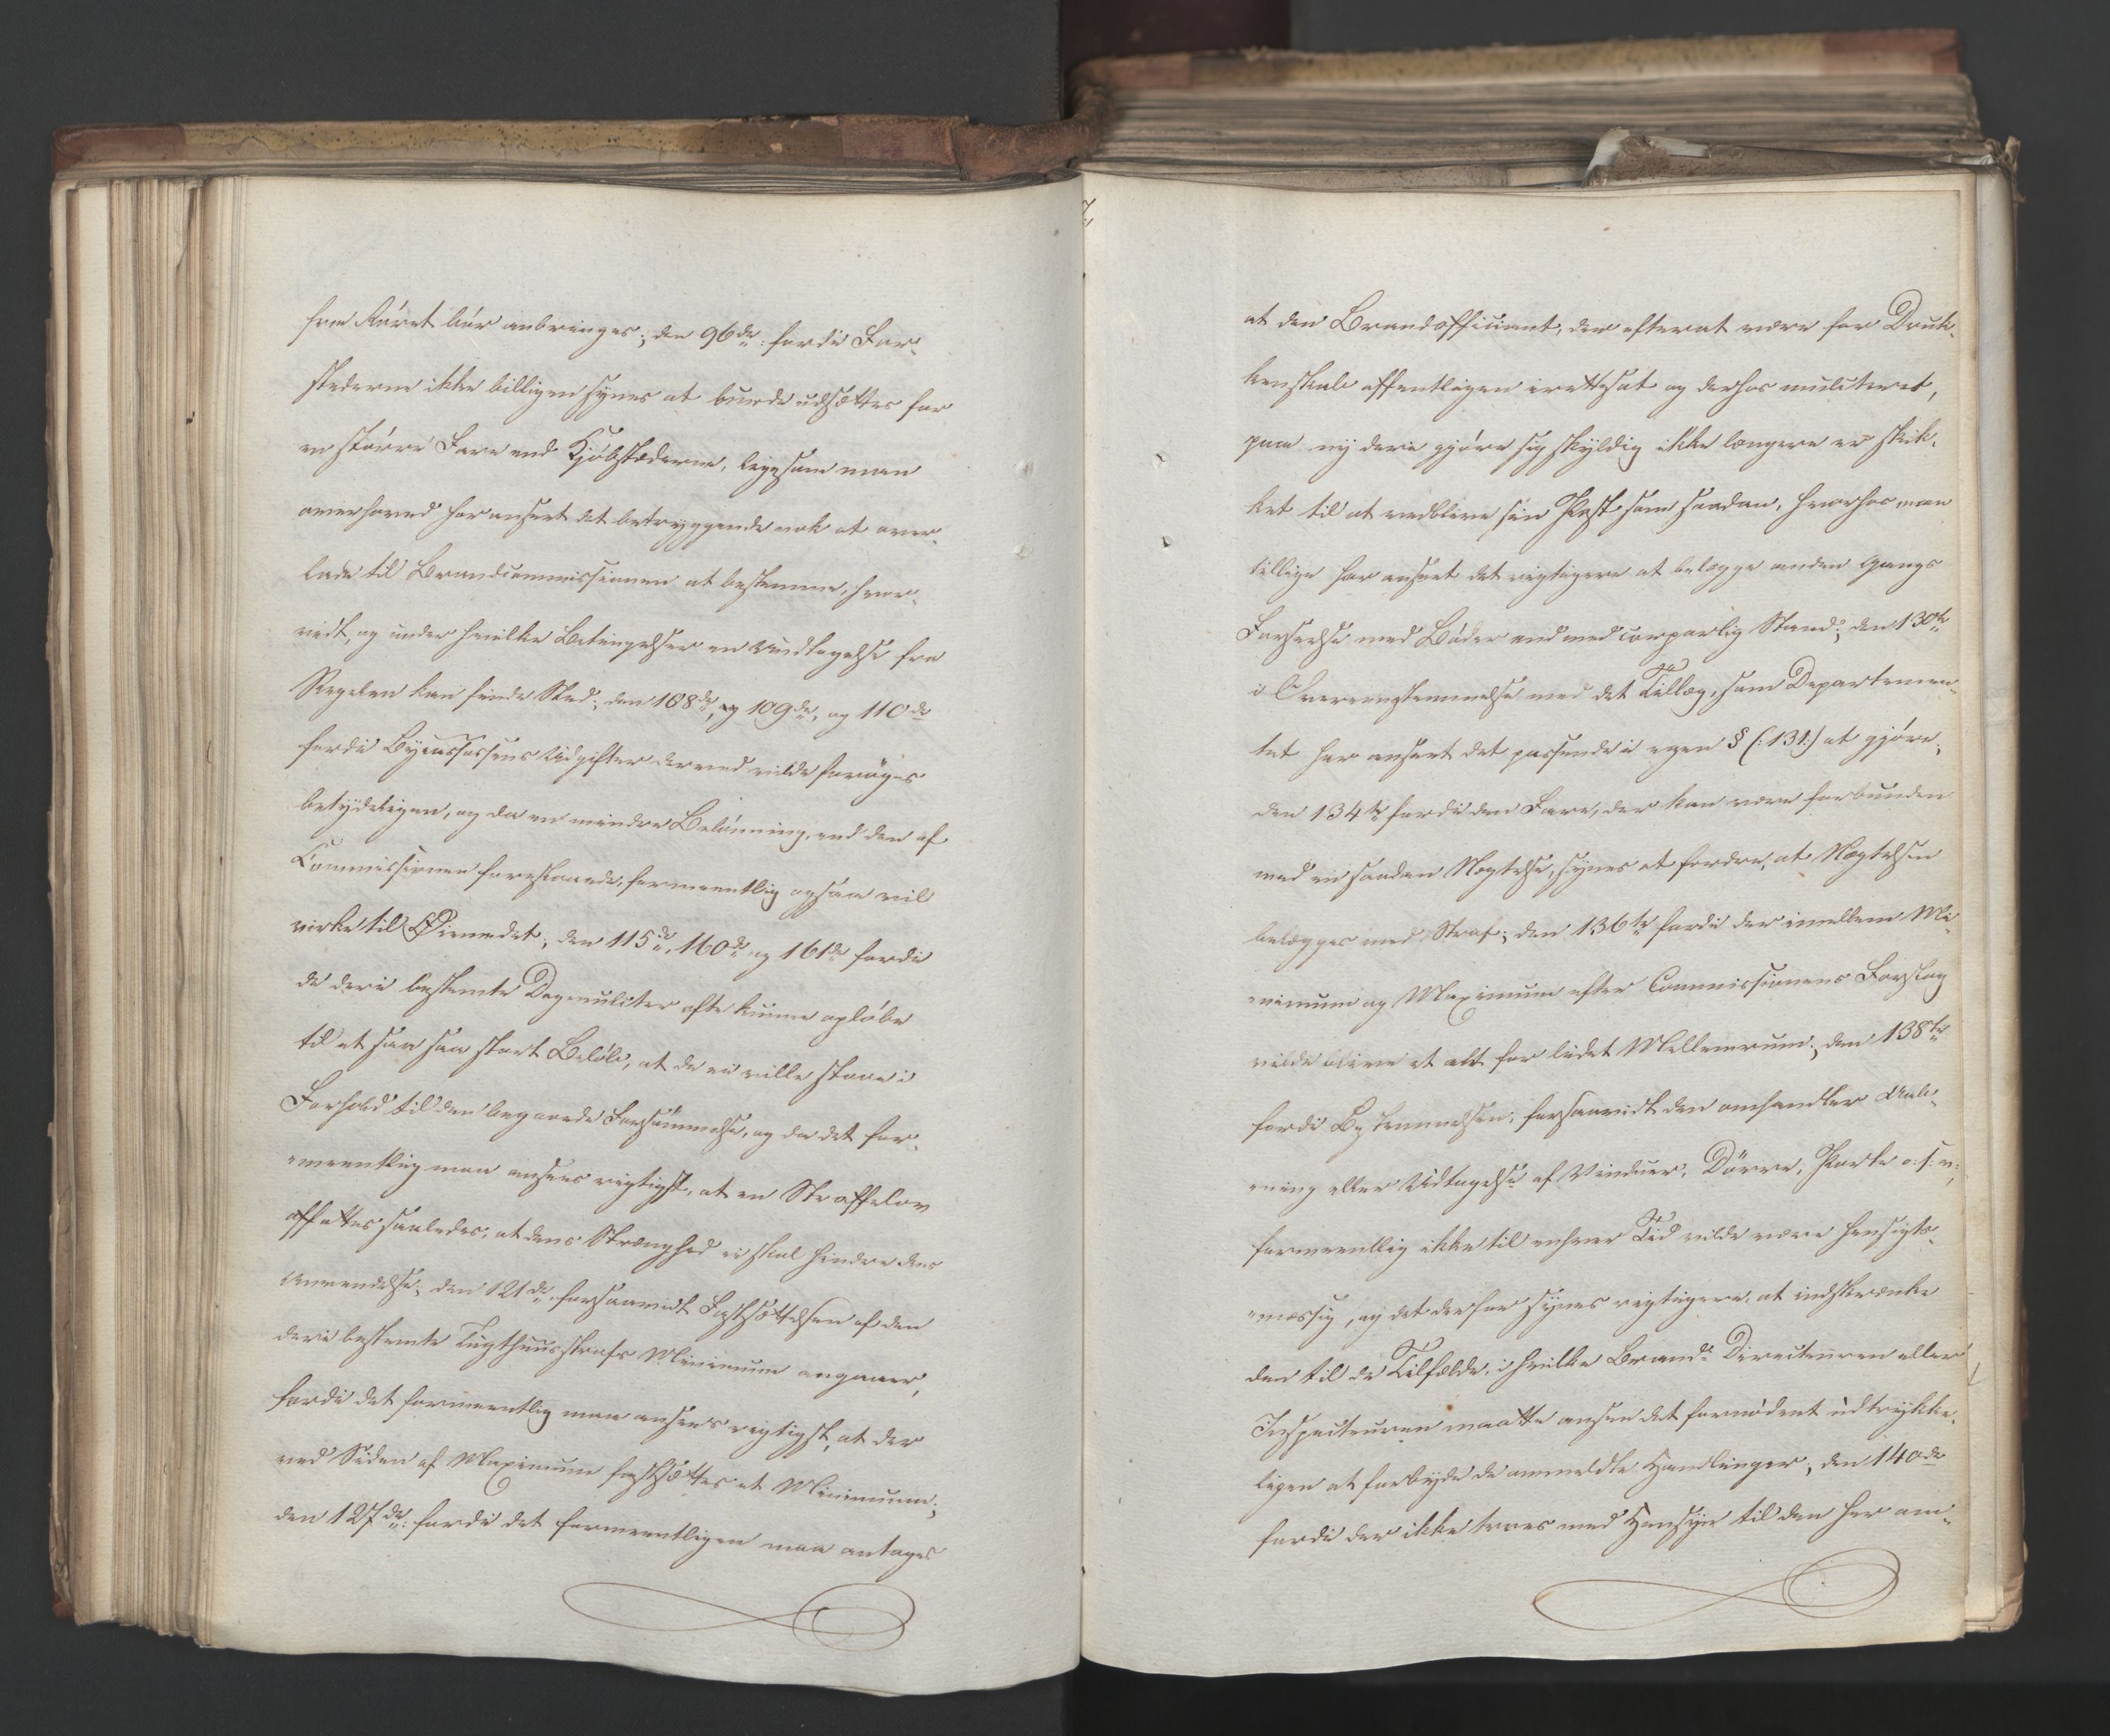 fra Røret bør anbringes; den 96de: fordi For-
stæderne ikke billigen synes at burde udsættes for
en større Fare end Kjøbstæderne, ligesom man
overhoved har anseet det betryggende nok at over-
lade til Brandcommissionen at bestemme, hvor-
vidt, og under hvilke Betingelser en Undtagelse fra
Regelen kan finde Sted; den 108de, og 109de, og 110de
fordi Byecassens Udgifter derved vilde forøges
betydeligen, og da en mindre Belønning, end den af
Commissionen foreslaaede, formeentlig ogsaa vil
virke til Øiemedet; den 115de, 160de og 161de fordi
de deri bestemte Dagmulcter ofte kunne opløbe
til et saa stort Beløb, at de ei ville staae i
Forhold til den begaaede Forsømmelse, og da det for-
meentlig maa ansees rigtigst, at en Straffelov
affattes saaledes, at dens Strænghed ei skal hindre dens
Anvendelse; den 121de, forsaavidt Fastsættelsen af den
deri bestemte Tugthuusstrafs Minimum angaaer,
fordi det formeentlig maa ansees rigtigst, at der
ved Siden af Maximum fastsættes et Minimum;
den 127de: fordi det formeentligen maa antages
at den Brandofficiant, der efterat være for Druk-
kenskab offentligen irettesat og derhos mulcteret,
paa ny deri gjøre sig skyldig ikke længere er skik-
ket til at vedblive sin Post som saadan, hvorhos man
tillige har anseet det rigtigere at belægge anden Gangs
Forseelse med Bøder end med corporlig Straf; den 130te
i Overeensstemmelse med det Tillæg, som Departemen-
tet har anseet det passende i egen § (:131:) at gjøre;
den 134te fordi den Fare, der kan være forbunden
med en saadan Nægtelse, synes at fordre, at Nægtelsen
belægges med Straf; den 136te fordi der imellem Mi-
nimum og Maximum efter Commissionens Forslag
vilde blive et alt for lidet Mellemrum; den 138te
fordi Bestemmelsen, forsaavidt den omhandler Aab-
ning eller Udtagelse af Vinduer, Dørre, Porte o: s: v:,
formeentlig ikke til enhver Tid vilde være hensigts-
mæssig, og det derfor synes rigtigere, at indskrænke
den til de Tilfælde, i hvilke Brand-Directeuren eller
Inspecteuren maatte ansee det fornødent udtrykke-
ligen at forbyde de ommeldte Handlinger; den 140de
fordi der ikke troes med Hensyn til den her om-